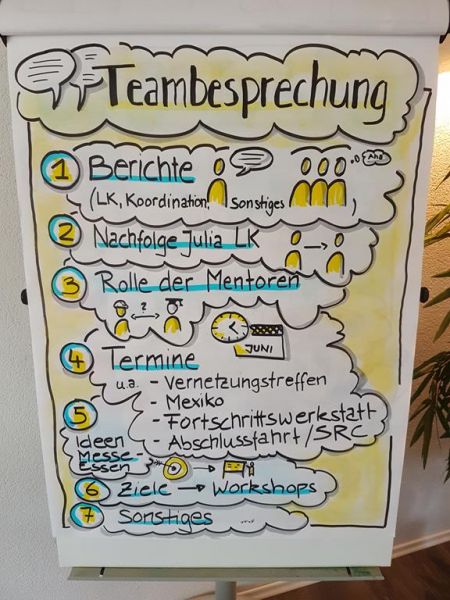 Teambesprechung
1 Berichte
(LK, Koordination, Sonstiges )
Aha
2 Nachfolge Julia LK
3 Rolle der Mentoren
?
4 Termine
JUNI
u.a. - Vernetzungstreffen
- Mexiko
- Fortschrittswerkstatt
- Abschlussfahrt/SRC
5
Ideen
Messe
Essen
6 Ziele → Workshops
7 Sonstiges